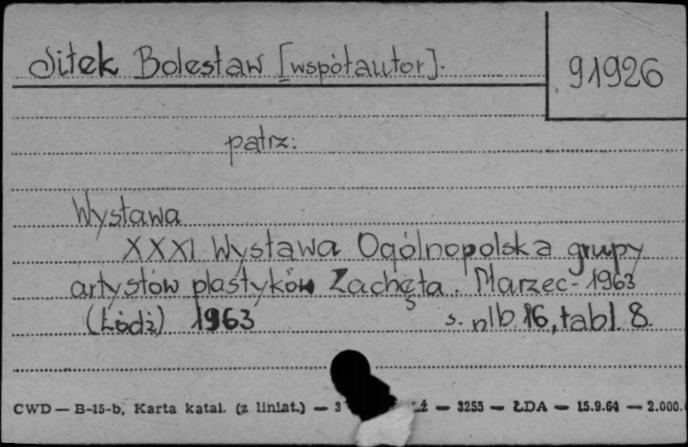 Sitek Bolesław [współautor].
91926
patrz:
Wystawa
XXXI Wystawa Ogólnopolska grupy
artystów plastyków Zachęta. Marzec - 1963
(Łódź) 1963 s. nlb. 16, tabl. 8.
CWD — B-15-b, Karta katal. (z liniat.) — 3 Ź — 3255 — ŁDA — 15.9.64 — 2.000.